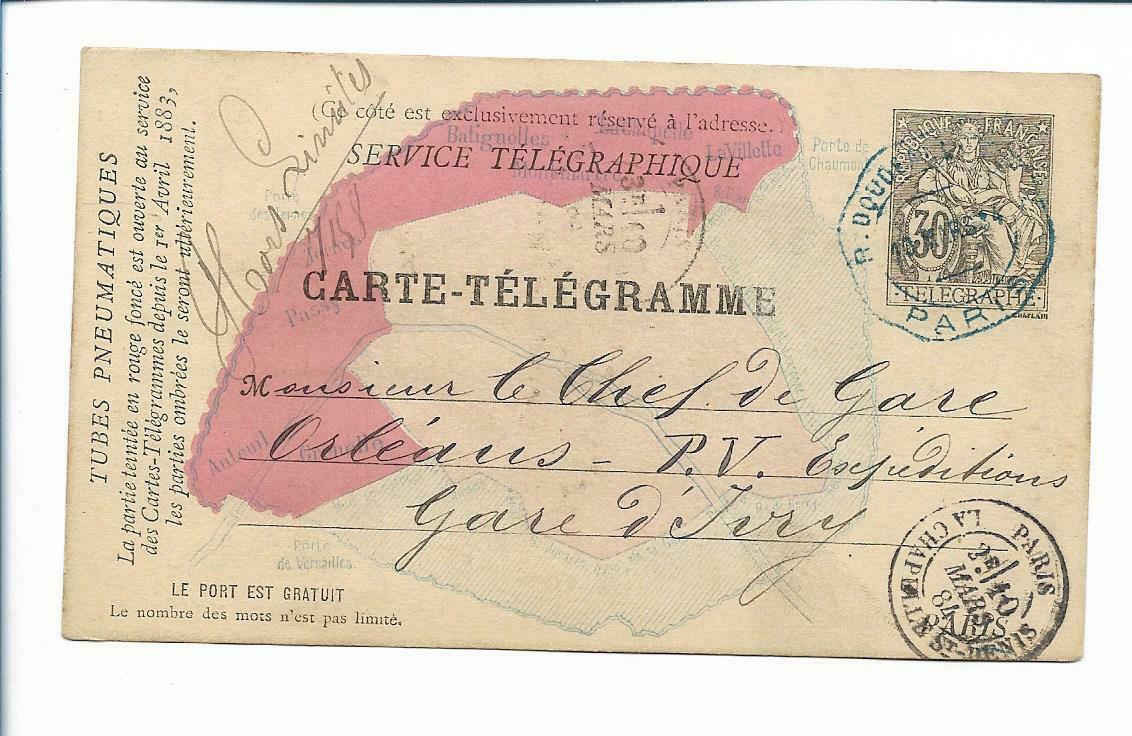 TUBES PNEUMATIQUES
La partie teintée en rouge foncé est ouverte au service
des Cartes-Télégrammes depuis le 1er Avril 1883,
les parties ombrées le seront ultérieurement.
Hors Limites
(Ce côté est exclusivement réservé à l'adresse.)
SERVICE TÉLÉGRAPHIQUE
CARTE-TÉLÉGRAMME
Batignolles
La Chapelle
La Villette
Montmartre
Porte de
Chaumont
Porte
des Ternes
Passy
Auteuil
Grenelle
Porte
de Versailles
REPUBLIQUE FRANÇAISE
30
TELEGRAPHE
CHAPLAIN
R. DOUD
PARIS
3E/10
MARS
Monsieur le Chef de Gare
Orléans - P.V. Expéditions
Gare d'Ivry
PARIS.
LE PORT EST GRATUIT
Le nombre des mots n'est pas limité.
PARIS
LA CHAPELLE ST-DENIS
2E/10
MARS
84